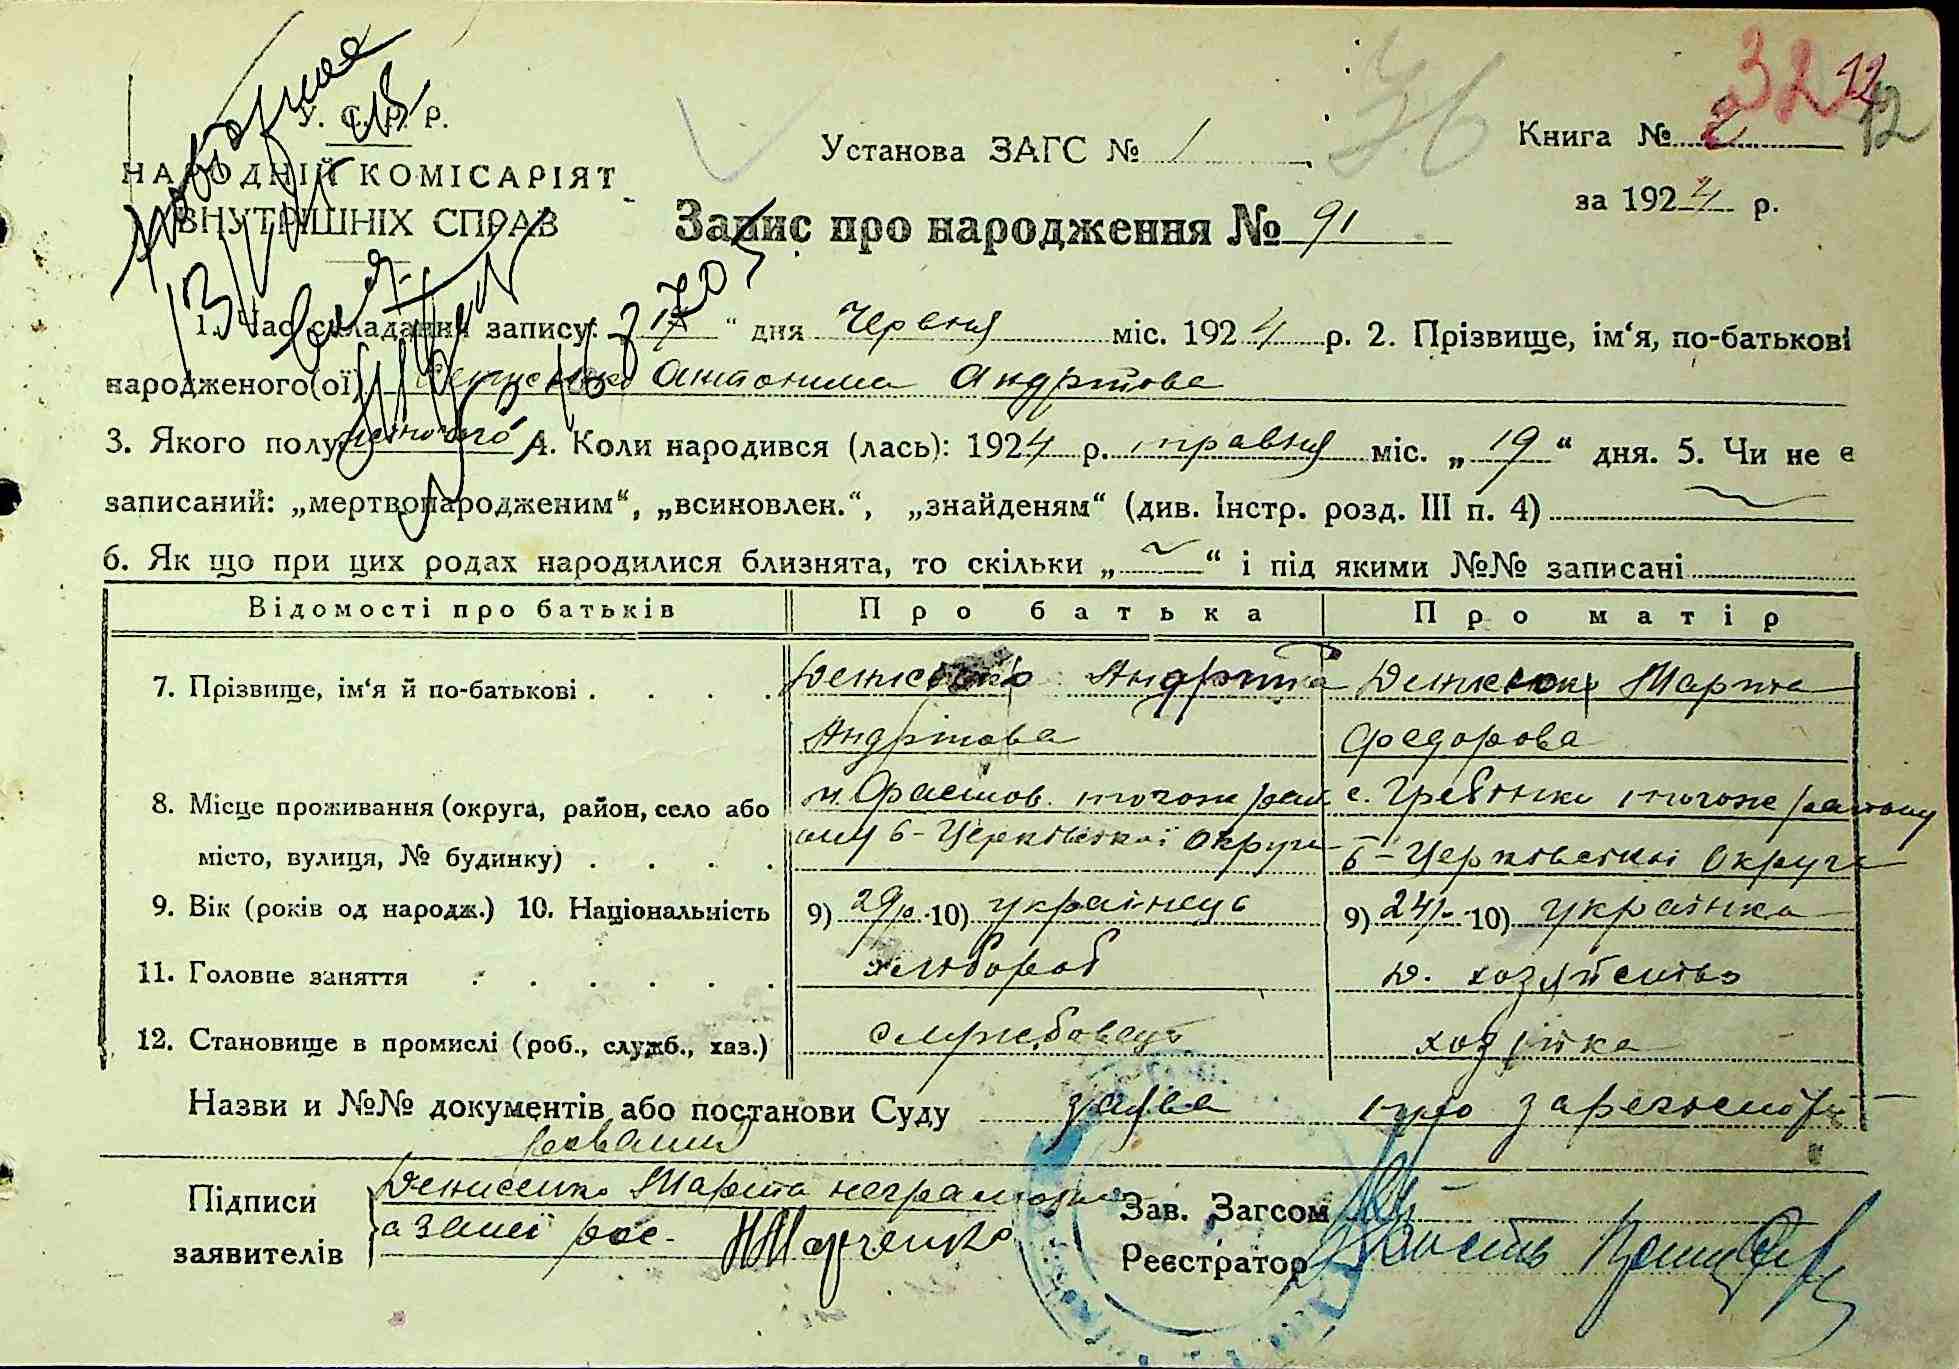 32 12
12
36
У. С. Р. Р.
НАРОДНІЙ КОМІСАРІЯТ
ВНУТРІШНІХ СПРАВ
Установа ЗАГС № 1
Книга № 2
за 1924 р.
Запис про народження № 91
1. Час складання запису: 17 “ дня Червня міс. 1924 р. 2. Прізвище, ім‘я, по-батькові
народженого(ої) Денисенко Антонина Андріїова
3. Якого полу жіночого 4. Коли народився (лась): 1924 р. травня міс. „ 19 “ дня. 5. Чи не є
записаний: „мертвонародженим“, „всиновлен.“, „знайденям“ (див. Інстр. розд. III п. 4)
6. Як що при цих родах народилися близнята, то скільки „ “ і під якими №№ записані
Відомості про батьків Про батька Про матір
7. Прізвище, ім‘я й по-батькові . . . . Денисенко Андрий Денисенко Мария
Андріїова Федорова
8. Місце проживання (округа, район, село або м. Фастов. того ж рай с. Гребінки того же району
місто, вулиця, № будинку) . . . . ону б-Церківської Округи б-Церківскої Округи
9. Вік (років од народж.) 10. Національність 9) 29р. 10) українець 9) 24р. 10) українка
11. Головне заняття . . . . . . хлібороб д. хозяйство
12. Становище в промислі (роб., служб., хаз.) службовець хозяйка
Назви и №№ документів або постанови Суду заява про зарегистрі
рования
Підписи
заявителів
Денисенко Мария неграмотна
а за неї рос. Марченко
Зав. Загсом
Реєстратор